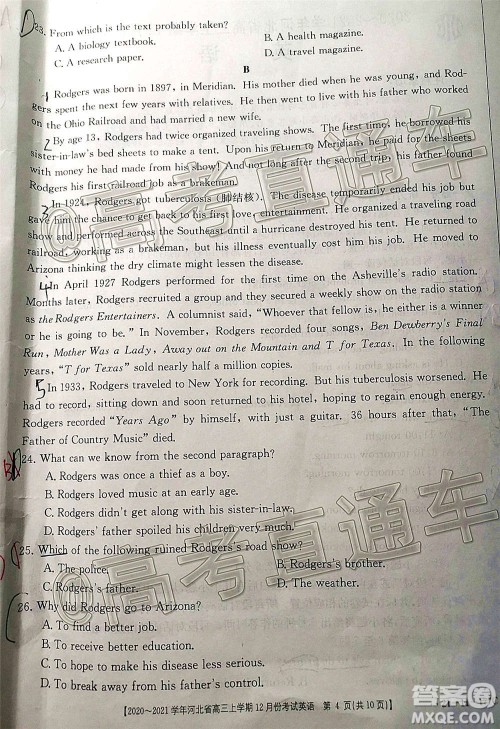 D
23. From which is the text probably taken?
A. A biology textbook. B. A health magazine.
C. A research paper. D. A travel magazine.
B
1 Rodgers was born in 1897, in Meridian. His mother died when he was young, and Rod-
gers spent the next few years with relatives. He then went to live with his father who worked
on the Ohio Railroad and had married a new wife.
2 By age 13, Rodgers had twice organized traveling shows. The first time, he borrowed his
sister-in-law's bed sheets to make a tent. Upon his return to Meridian, he paid for the sheets
with money he had made from his show! And not long after the second trip, his father found
Rodgers his first railroad job as a brakeman.
3 In 1924, Rodgers got tuberculosis (肺结核). The disease temporarily ended his job but
gave him the chance to get back to his first love, entertainment. He organized a traveling road-
show and performed across the Southeast until a hurricane destroyed his tent. He returned to
railroad, working as a brakeman, but his illness eventually cost him his job. He moved to
Arizona thinking the dry climate might lessen the disease.
4 In April 1927 Rodgers performed for the first time on the Asheville's radio station.
Months later, Rodgers recruited a group from Tennessee and secured a weekly slot on the station
as the Rodgers Entertainers. A columnist said, "Whoever that fellow is, he either is a winner
or he is going to be." In November, Rodgers recorded four songs, Ben Dewberry's Final
Run, Mother Was a Lady, Away out on the Mountain and T for Texas. In the following
years, "T for Texas" sold nearly half a million copies.
5 In 1933, Rodgers traveled to New York for recording. But his tuberculosis worsened. He
had to record, sitting down and soon returned to his hotel, hoping to regain enough energy.
Rodgers recorded "Years Ago" by himself, with guitar. 36 hours after that, "The
Father of Country Music" died.
B 24. What can we know from the second paragraph?
A. Rodgers was once a thief as a boy.
B. Rodgers loved music at an early age.
C. Rodgers didn't get along with his sister-in-law.
D. Rodgers' father spoiled his children very much.
25. Which of the following ruined Rodgers's road show?
A. The police. B. Rodgers's brother.
C. Rodgers's father. D. The weather.
C 26. Why did Rodgers go to Arizona?
A. To find a better job.
B. To receive better education.
C. To hope to make his disease less serious.
D. To break away from his father.
【2020~2021学年河北省高三上学期12月份考试英语 第 4 页(共10页)】
@高考直通车
@高考直通车
答案圈
MXQE.COM